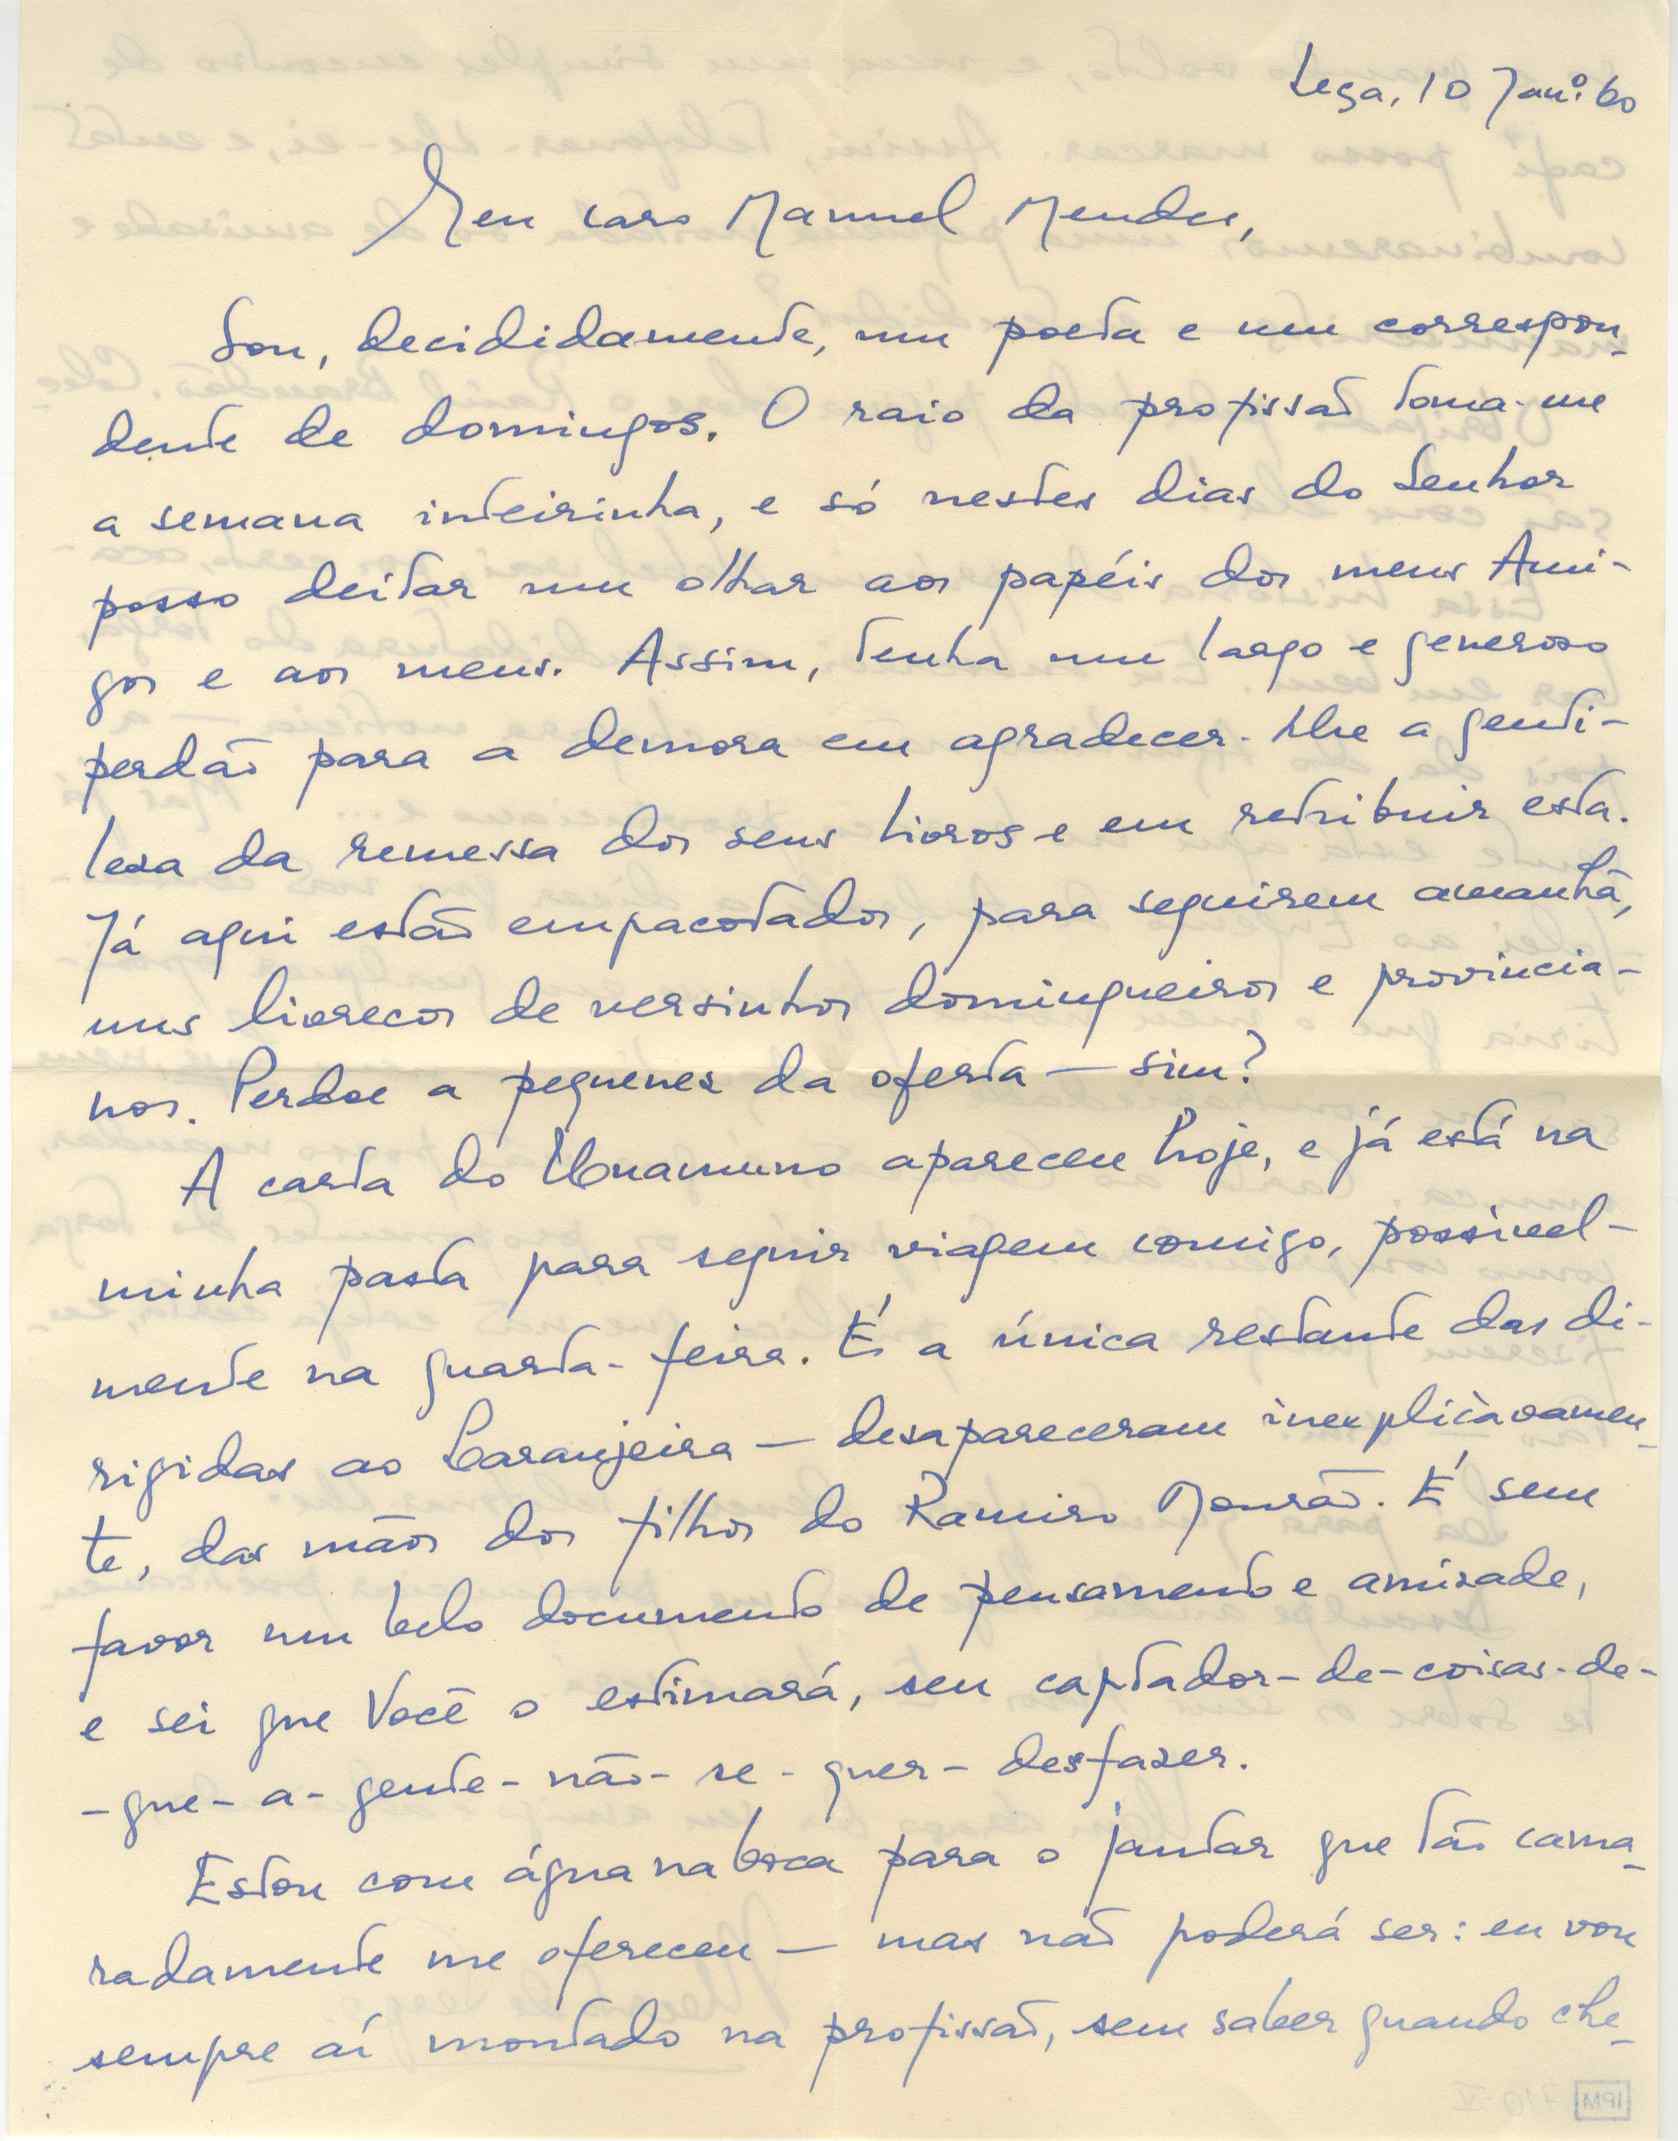 Leça, 10 Janº. 60
Meu caro Manuel Mendes,
Sou, decididamente, um poeta e um correspon-
dente de domingos. O raio da profissão toma-me
a semana inteirinha, e só nestes dias do Senhor
posso deitar um olhar aos papéis dos meus Ami-
gos e aos meus. Assim, tenha um largo e generoso
perdão para a demora em agradecer-lhe a genti-
leza da remessa dos seus livros e em retribuir esta.
Já aqui estão empacotados, para seguirem amanhã,
uns livrecos de versinhos domingueiros e provincia-
nos. Perdoe a pequenez da oferta — sim?
A carta do Unamuno apareceu hoje, e já está na
minha pasta para seguir viagem comigo, possìvel-
mente na quarta-feira. É a única restante das di-
rigidas ao Laranjeira — desapareceram inexplicàvamen-
te, das mãos dos filhos do Ramiro Mourão. É sem
favor um belo documento de pensamento e amizade,
e sei que Você o estimará, seu captador-de-coisas-de-
-que-a-gente-não-se-quer-desfazer.
Estou com água na boca para o jantar que tão cama-
radamente me ofereceu — mas não poderá ser: eu vou
sempre aí montado na profissão, sem saber quando che-
IPM